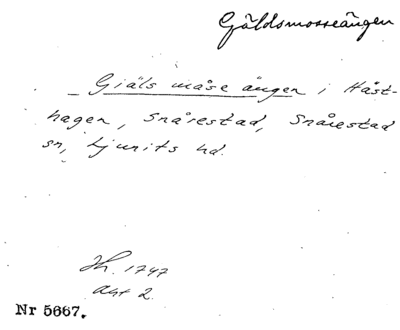 Gäldsmosseängen
Giäls måse ängen i Häst-
hagen, Snårestad, Snårestad
sn, Ljunits hd.
Jh. 1747
akt 2.
Nr 5667.